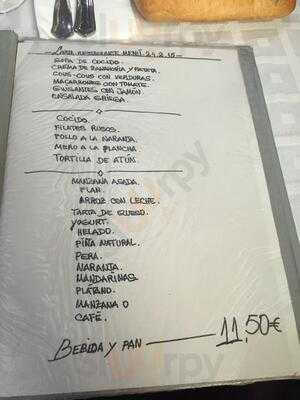 RESTAURANTE MENÚ 24.2.15
SOPA DE COCIDO.
CREMA DE ZANAHORIA Y PATATA.
COUS-COUS CON VERDURAS.
MACARRONES CON TOMATE.
GUISANTES CON JAMÓN
ENSALADA GRIEGA
COCIDO.
FILETES RUSOS.
POLLO A LA NARANJA.
MERO A LA PLANCHA
TORTILLA DE ATÚN.
MANZANA ASADA.
FLAN.
ARROZ CON LECHE.
TARTA DE QUESO.
YOGURT.
HELADO.
PIÑA NATURAL.
PERA.
NARANJA.
MANDARINAS
PLÁTANO.
MANZANA O
CAFÉ.
BEBIDA Y PAN — 11,50€